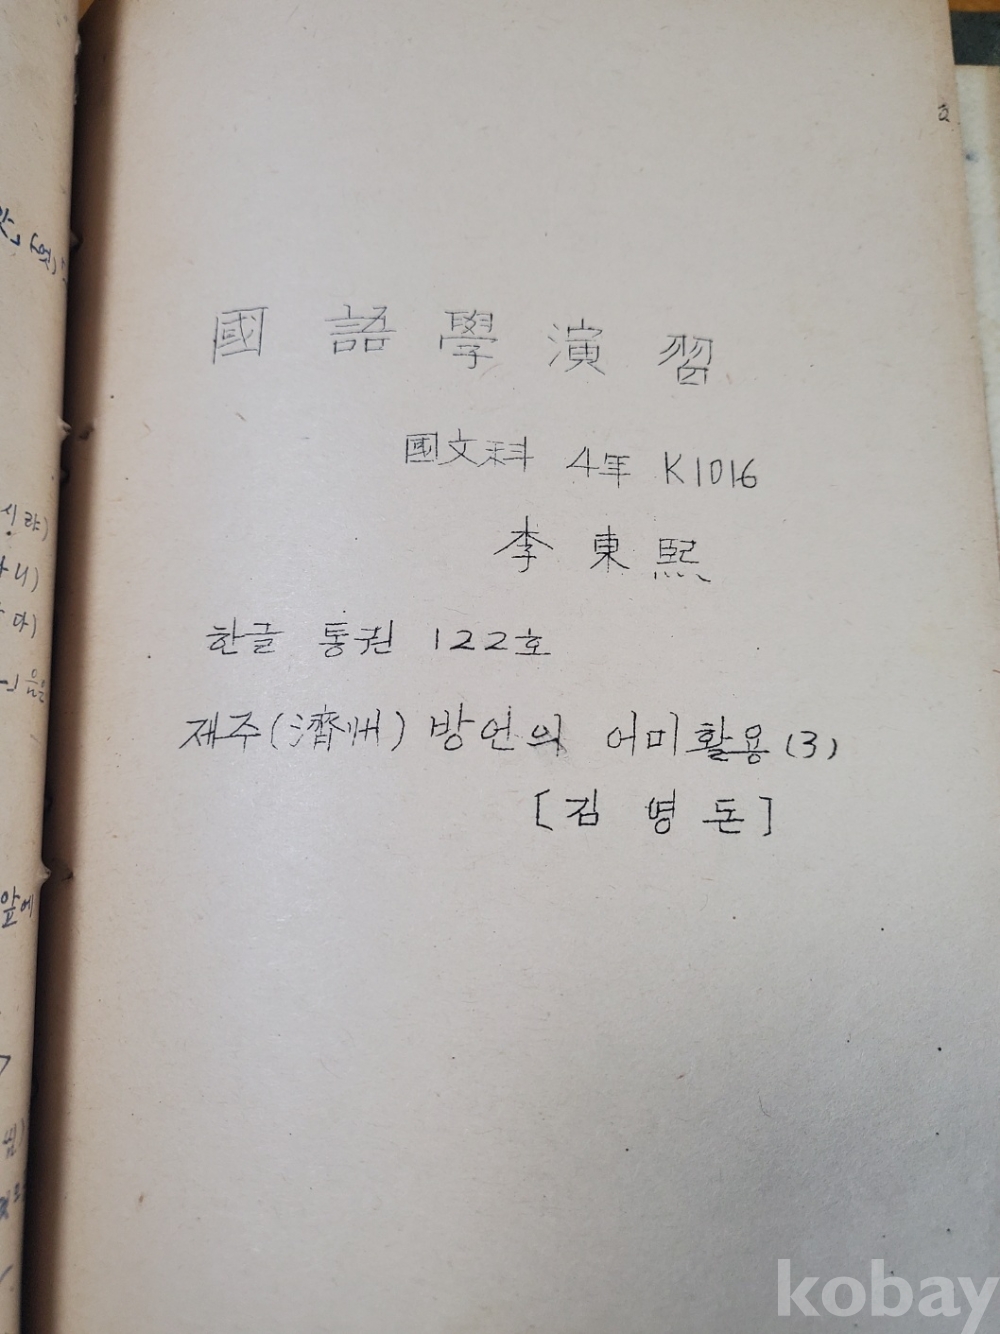 國語學演習
國文科 4年 K1016
李東熙
한글 통권 122호
제주(濟州) 방언의 어미활용(3)
[김영돈]
앞에
kobay